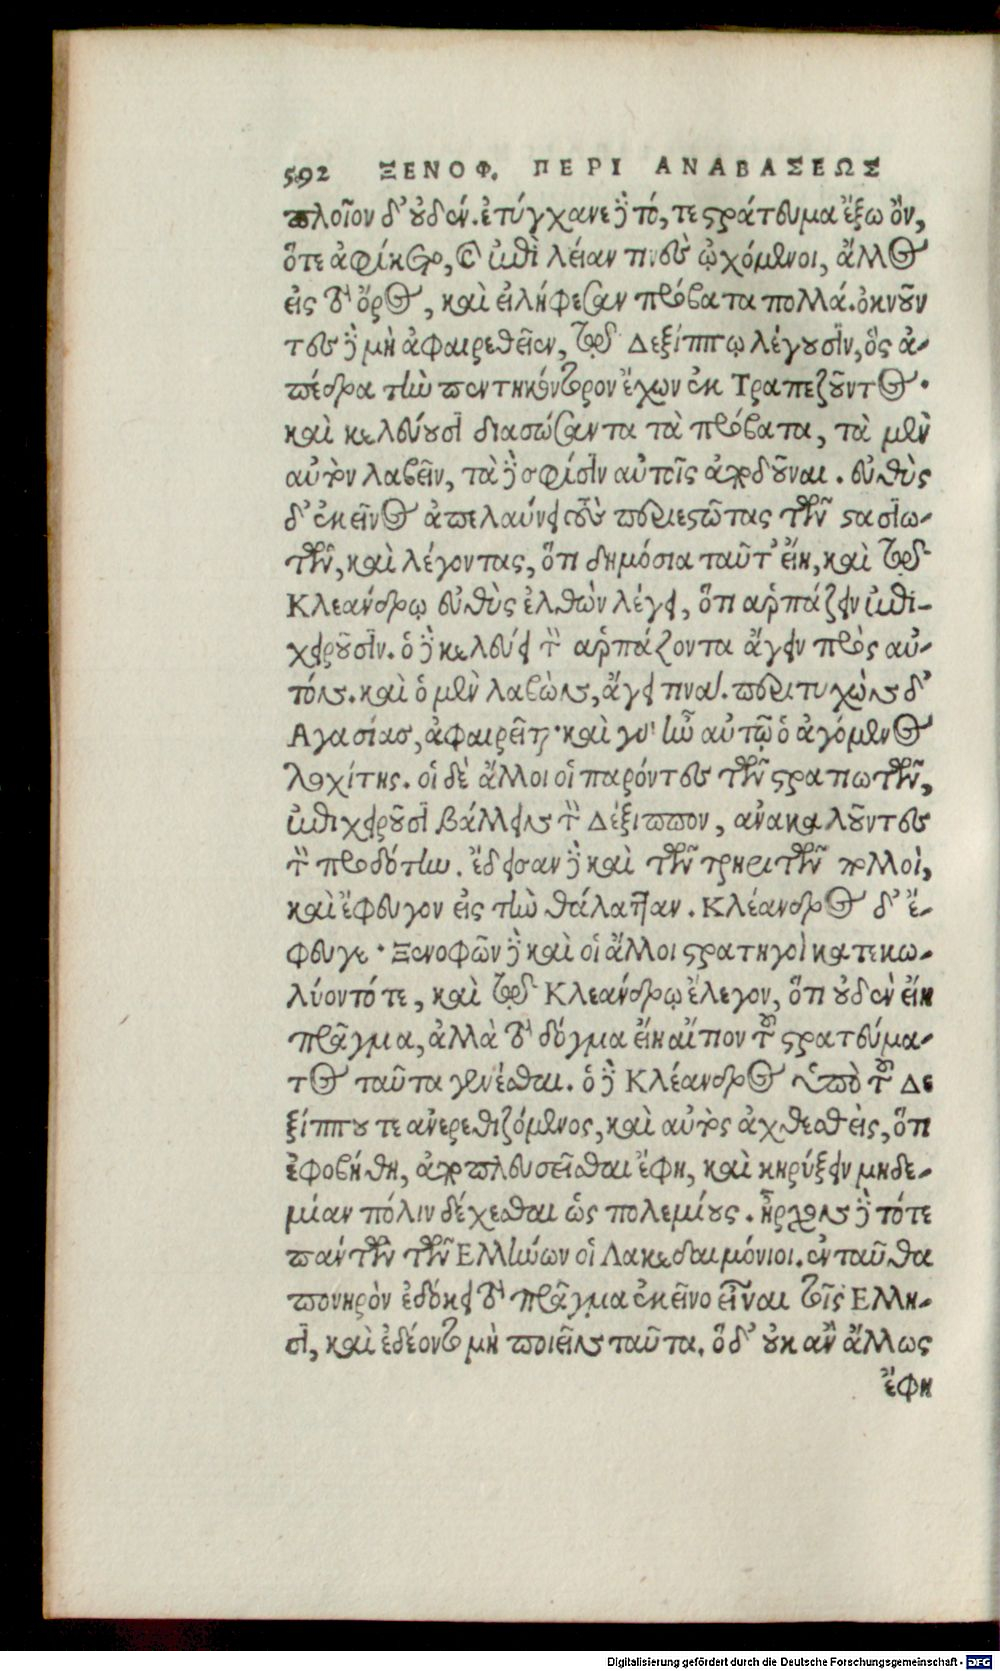 592 ΞΕΝΟΦ. ΠΕΡΙ ΑΝΑΒΑΣΕΩΣ
πλοῖον δ' οὐδέν. ἐτύγχανε δὲ τό, τε στράτευμα ἔξω ὂν,
ὅτε ἀφίκετο, καὶ ἐπὶ λείαν τινὲς ᾠχόμενοι, ἄλλος
εἰς τὸ ὄρος, καὶ εἰλήφεσαν πρόβατα πολλά. ὀκνοῦν
τες δὲ μὴ ἀφαιρεθεῖεν, τῷ Δεξίππῳ λέγουσιν, ὃς ἀ-
πέδρα τὴν πεντηκόντορον ἔχων ἐκ Τραπεζοῦντος.
καὶ κελεύουσι διασώσαντα τὰ πρόβατα, τὰ μὲν
αὐτὸν λαβεῖν, τὰ δὲ σφίσιν αὐτοῖς ἀποδοῦναι. εὐθὺς
δ' ἐκεῖνος ἀπελαύνει τοὺς περιεστῶτας τῶν στασιω-
τῶν, καὶ λέγοντας, ὅτι δημόσια ταῦτ' εἴη, καὶ τῷ
Κλεάνδρῳ εὐθὺς ἐλθὼν λέγει, ὅτι ἁρπάζειν ἐπι-
χειροῦσιν. ὁ δὲ κελεύει τὸν ἁρπάζοντα ἄγειν πρὸς αὐ-
τόν. καὶ ὁ μὲν λαβὼν, ἄγει τινα. περιτυχὼν δ'
Αγασίας, ἀφαιρεῖται· καὶ γὰρ ἦν αὐτῷ ὁ ἀγόμενος
λοχίτης. οἱ δὲ ἄλλοι οἱ παρόντες τῶν στρατιωτῶν,
ἐπιχειροῦσι βάλλειν τὸν Δέξιππον, ἀνακαλοῦντες
τὸν προδότην. ἔδεισαν δὲ καὶ τῶν τριηριτῶν πολλοὶ,
καὶ ἔφευγον εἰς τὴν θάλατταν. Κλέανδρος δ' ἔ-
φευγε· Ξενοφῶν δὲ καὶ οἱ ἄλλοι στρατηγοὶ κατεκω-
λύοντό τε, καὶ τῷ Κλεάνδρῳ ἔλεγον, ὅτι οὐδὲν εἴη
πρᾶγμα, ἀλλὰ τὸ δόγμα εἴη αἴτιον τοῦ στρατεύμα-
τος ταῦτα γενέσθαι. ὁ δὲ Κλέανδρος ὑπὸ τοῦ Δε
ξίππου τε ἀνερεθιζόμενος, καὶ αὐτὸς ἀχθεσθεὶς, ὅτι
ἐφοβήθη, ἀποπλευσεῖσθαι ἔφη, καὶ κηρύξειν μηδε-
μίαν πόλιν δέχεσθαι ὡς πολεμίους. ἦρχον δὲ τότε
πάντων τῶν Ελλήνων οἱ Λακεδαιμόνιοι. ἐνταῦθα
πονηρὸν ἐδόκει τὸ πρᾶγμα ἐκεῖνο εἶναι τοῖς Ελλη-
σι, καὶ ἐδέοντο μὴ ποιεῖν ταῦτα. ὅ δ' οὐκ ἂν ἄλλως
ἔφη
Digitalisierung gefördert durch die Deutsche Forschungsgemeinschaft - DFG